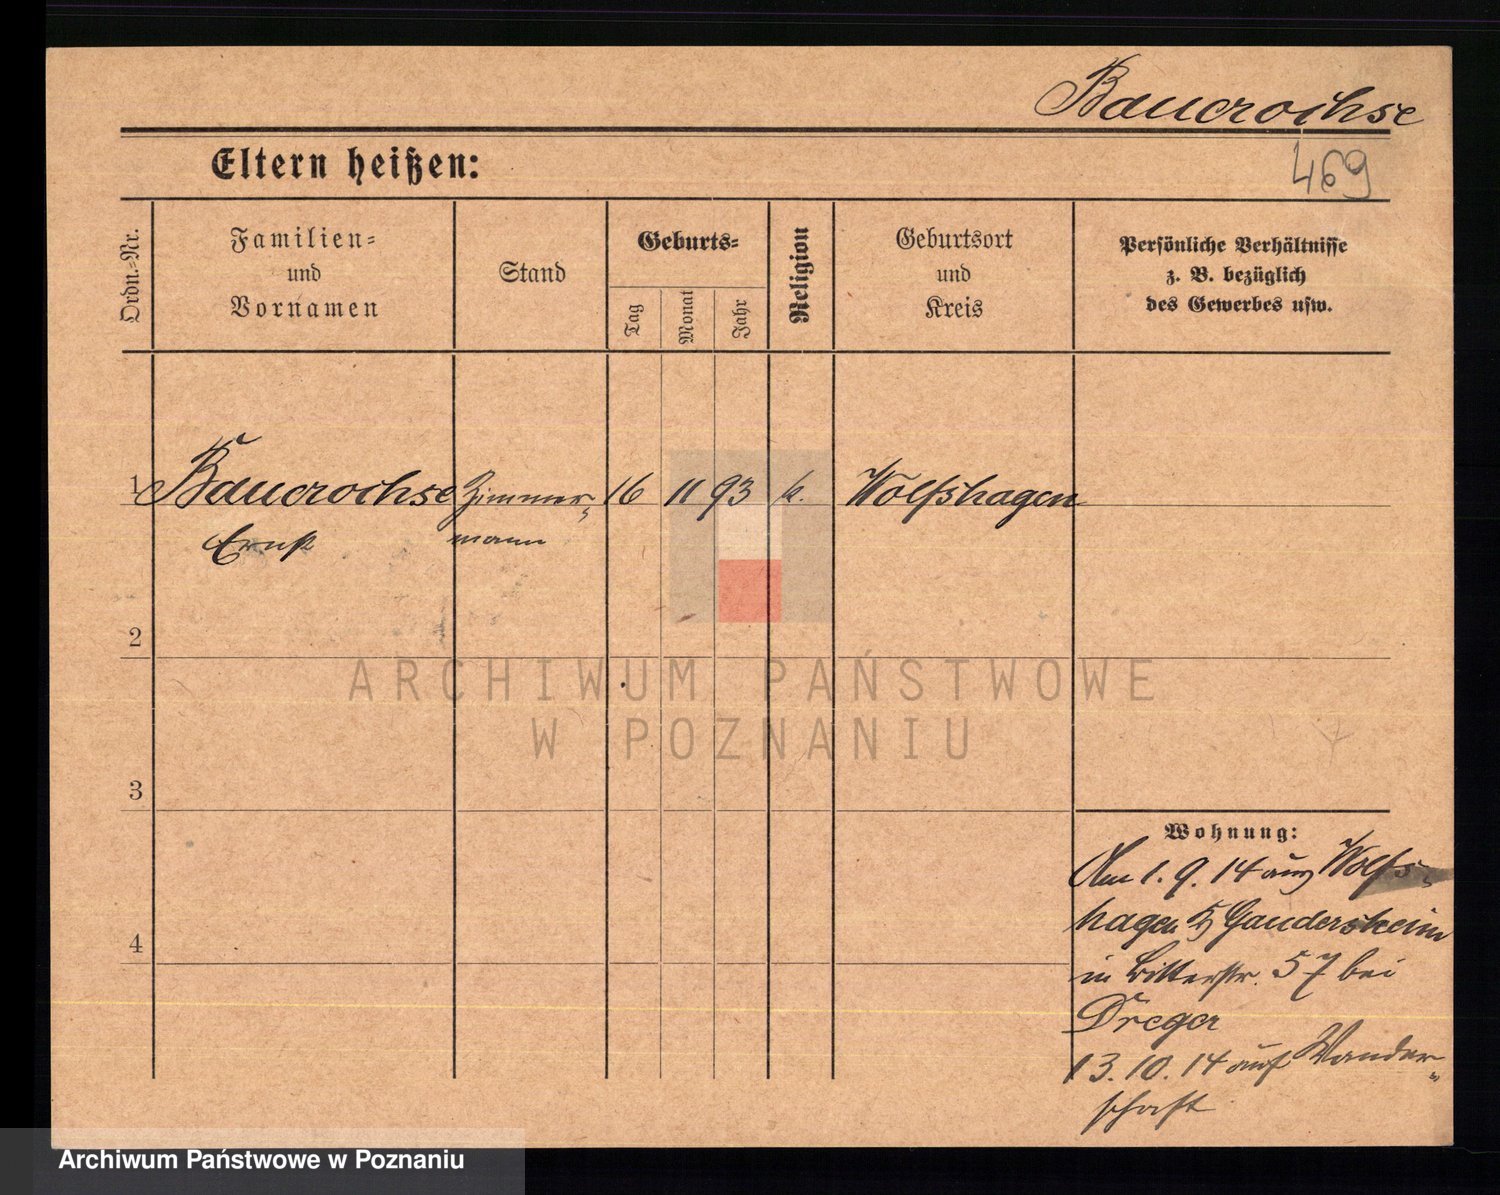 Bauerochse
Eltern heißen:
469
Ordn.-Nr.
Familien-
und
Vornamen
Stand
Geburts-
Tag
Monat
Jahr
Religion
Geburtsort
und
Kreis
Persönliche Verhältnisse
z. B. bezüglich
des Gewerbes usw.
1 Bauerochse Zimmer- 16 11 93 k. Wolfshagen
Ernst mann
2
3
4
Wohnung:
Am 1. 9. 14 aus Wolfs-
hagen Gandersheim
in Ritterstr. 57 bei
Dreger
13. 10. 14 auf Wander-
schaft
ARCHIWUM PAŃSTWOWE
W POZNANIU
Archiwum Państwowe w Poznaniu